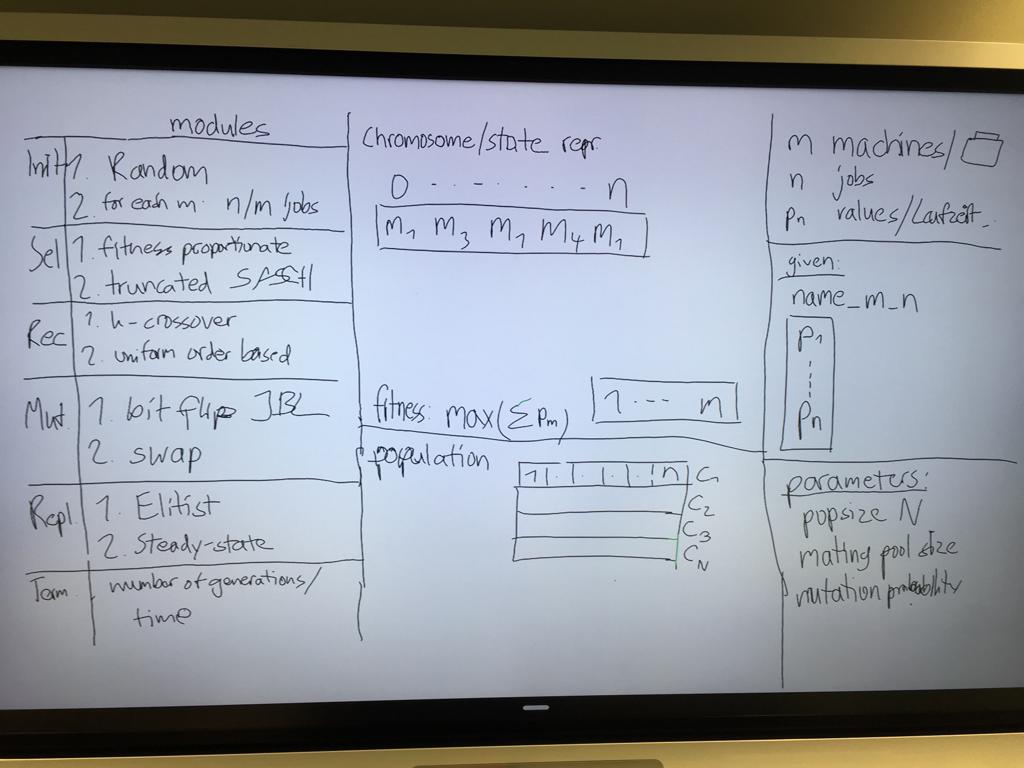 modules
Init 1. Random
2. for each m. n/m jobs
Sel 1. fitness proportionate
2. truncated
Rec 1. k-crossover
2. uniform order based
Mut. 1. bit flip
2. swap
Repl. 1. Elitist
2. Steady-state
Term. number of generations/
time
Chromosome/state repr
0 . . - . . . . n
m1 m3 m1 m4 m1
fitness: max(∑pm)
1 --- m
population
1 n C1
C2
C3
CN
m machines/
n jobs
pn values/Laufzeit.
given:
name_m_n
p1
pn
parameters:
popsize N
mating pool size
mutation probability